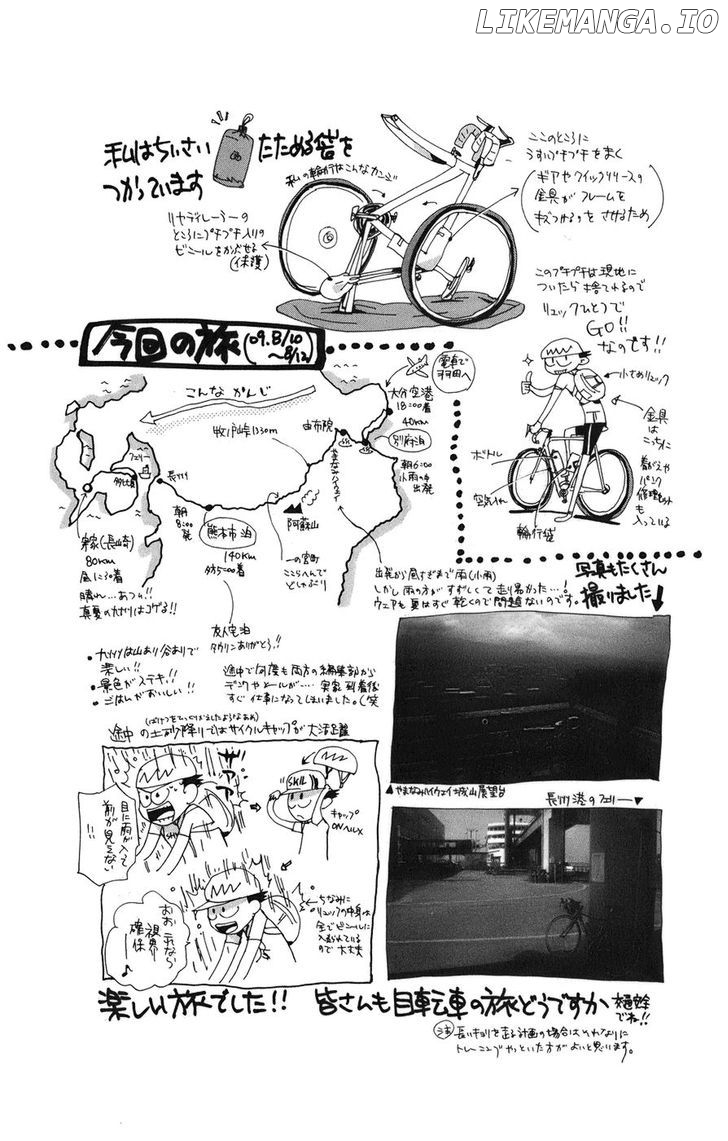 LIKEMANGA.IO
私はちいさい
たためる袋を
つかっています
私の輪行はこんなカンジ
リヤディレーラーの
ところにプチプチ入りの
ビニールをかぶせる
(保護)
ここのところに
うすいプチプチをまく
(ギアやクイックリリースの
金具がフレームを
キズつけるのをさせるため)
このプチプチは現地に
ついたら捨てれるので
リュックひとつで
GO!!
なのです!!
小さめリュック
金具は
こっちに
着がえや
パンク
修理セットも
入っている
ボトル
空気入れ
輪行袋
今回の旅('09.8/10
〜8/12)
こんなかんじ
電車で
羽田へ
大分空港
18:00着
40km
別府泊
朝6:00
小雨の中
出発
由布院
やまなみハイウェイ
牧ノ戸峠1330m
阿蘇山
一の宮町
ここらへんで
どしゃぶり
熊本市泊
140km
夕方5:00着
友人宅泊
タウリンありがとう!!
長洲
朝
8:00
発
フェリー
多比良
実家(長崎)
80km
昼に30着
晴れ…あつい!!
真夏の九州はコゲる!!
出発から昼すぎまで雨(小雨)
しかし雨の方がすずしくて走り易かった…!
ウェアも夏はすぐ乾くので問題ないのです。
・九州は山あり谷ありで
楽しい!!
・景色がステキ!!
・ごはんがおいしい!!
途中で何度も両方の編集部から
デンワやメールが…実家到着後
すぐ仕事になってしまいました。(笑
写真もたくさん
撮りました↓
(ばけつをひっくりかえしたようなあめ)
途中の土砂降りではサイクルキャップが大活躍
ザアアア
目に雨が入って
前が見えない
!!
SKIL
キャップ
ONヘルメ
おおこれなら
視界
確保♪
ちなみに
リュックの中身は
全てビニールに
入れられている
ので大丈夫
▲やまなみハイウェイ城山展望台
長洲港のフェリー▼
楽しい旅でした!!　皆さんも自転車の旅どうですか
交通安全
でね!!
注 長いキョリを走る計画の場合はそれなりに
トレーニングやっといた方がよいと思います。